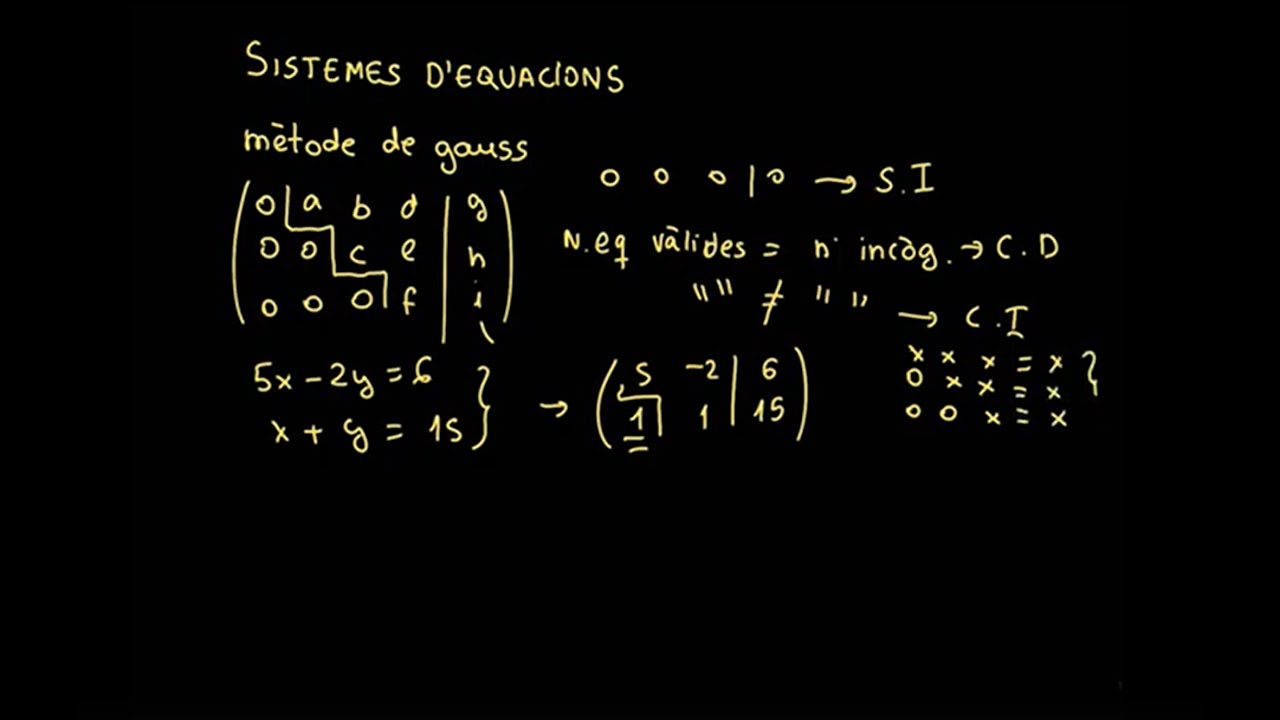 SISTEMES D'EQUACIONS
mètode de gauss
0 a b d | g
0 0 c e | h
0 0 0 f | i
0 0 0 | 0 → S.I
N.eq vàlides = nº incòg. → C.D
"" ≠ "" → C.I
x x x = x
0 x x = x
0 0 x = x
5x - 2y = 6
x + y = 15
→
5 -2 | 6
1 1 | 15